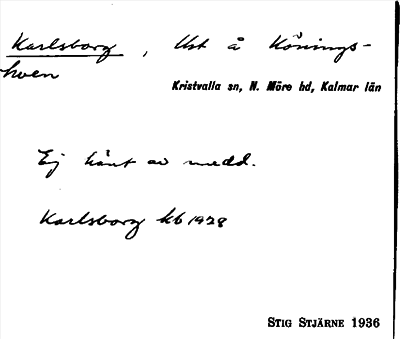 Karlsborg, Ust å Könings-
hven
Kristvalla sn, N. Möre hd, Kalmar län
Ej känt av medd.
Karlsborg kb 1928
STIG STJÄRNE 1936